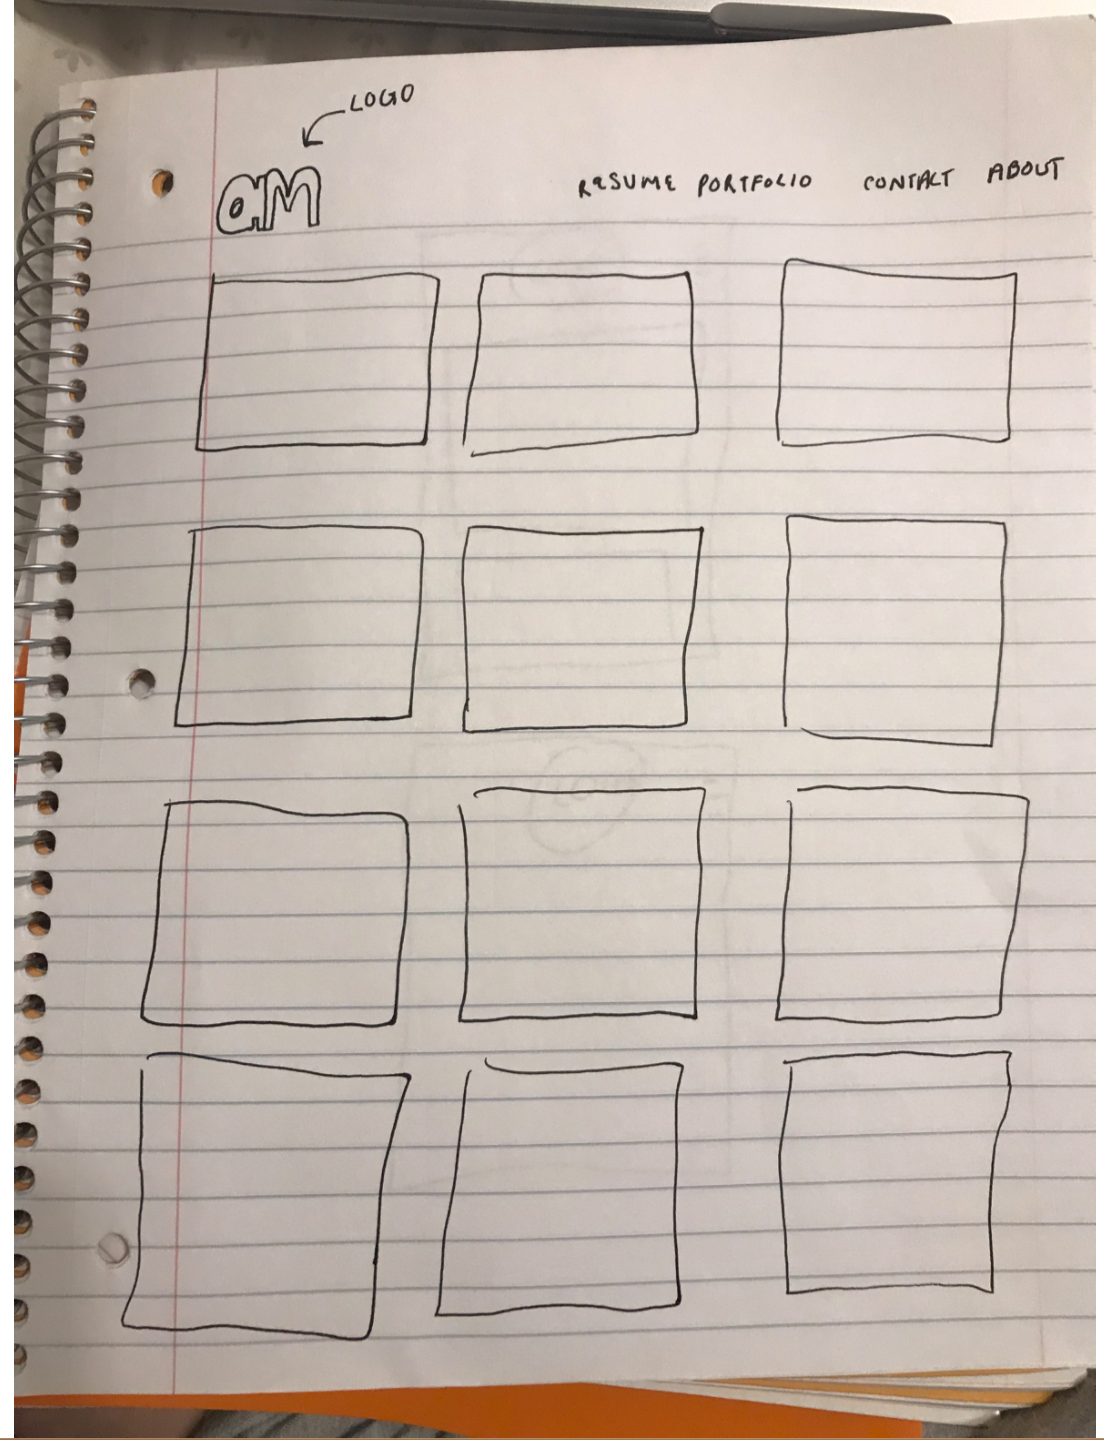 LOGO
am
RESUME PORTFOLIO CONTACT ABOUT